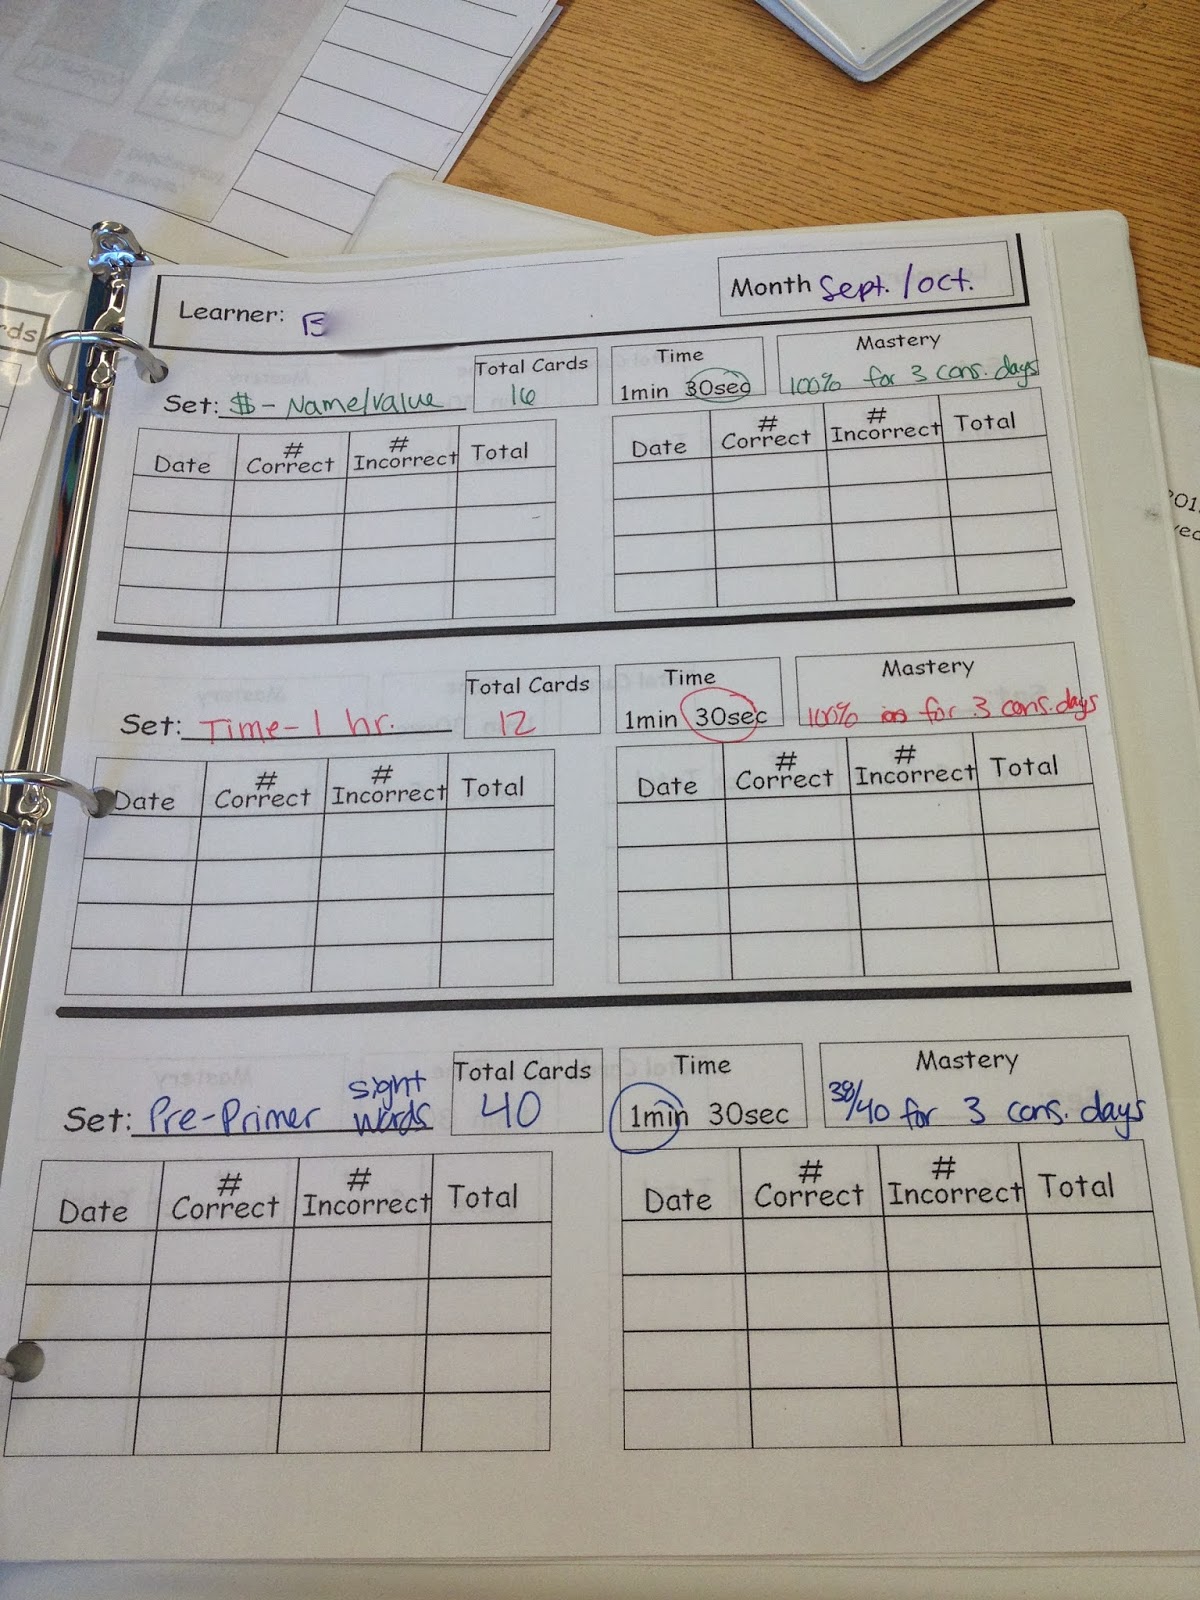 Learner: B
Month Sept. / oct.
Total Cards
16
Time
1min 30sec
Mastery
100% for 3 cons. days
Set: $ - Name/Value
Date # Correct # Incorrect Total
Date # Correct # Incorrect Total
Total Cards
12
Time
1min 30sec
Mastery
100% for 3 cons. days
Set: Time - 1 hr.
Date # Correct # Incorrect Total
Date # Correct # Incorrect Total
Total Cards
40
Time
1min 30sec
Mastery
38/40 for 3 cons. days
Set: Pre-Primer sight words
Date # Correct # Incorrect Total
Date # Correct # Incorrect Total